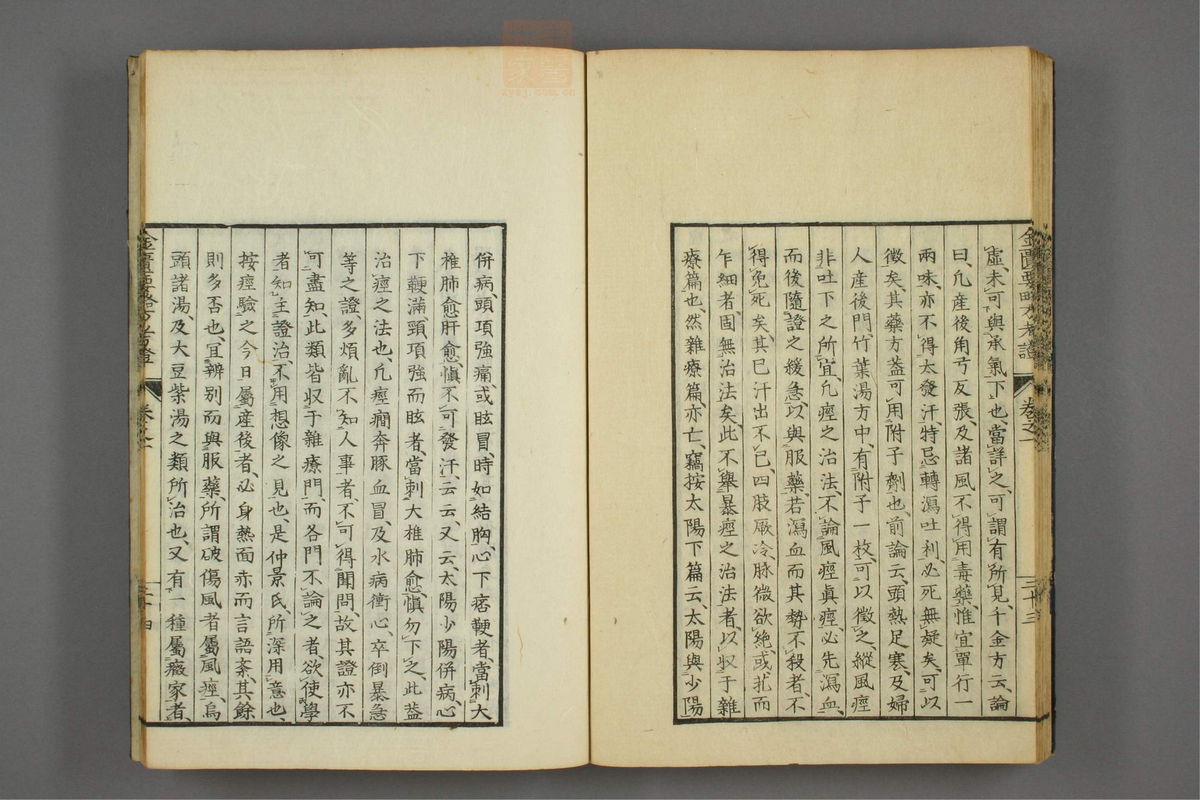 虛、未可與承氣下也、當詳之、可謂有所見、千金方云、論
曰、凡産後角弓反張、及諸風、不得用毒藥、惟宜單行一
兩味、亦不得太發汗、特忌轉瀉吐利、必死無疑矣、可以
徵矣、其藥方蓋可用附子劑也、前論云、頭熱足寒、及婦
人産後門、竹葉湯方中、有附子一枚、可以徵之、縱風痙
非吐下之所宜、凡痙之治法、不論風痙眞痙、必先瀉血、
而後隨證之緩急、以與服藥、若瀉血而其勢不殺者、不
得免死矣、其已汗出不已、四肢厥冷、脉微欲絶、或芤而
乍細者、固無治法矣、此不擧暴痙之治法者、以収于雜
療篇也、然雜療篇亦亡、竊按太陽下篇云、太陽與少陽
金匱要略方考證
卷之一
三十三
併病、頭項強痛、或眩冒、時如結胸、心下痞鞕者、當刺大
椎肺愈肝愈、愼不可發汗、云云、又云、太陽少陽併病、心
下鞕滿、頸項強而眩者、當刺大椎肺愈、愼勿下之、此蓋
治痙之法也、凡痙癎奔豚血冒、及水病衝心、卒倒暴急
等之證、多煩亂不知人事者、不可得聞問、故其證亦不
可盡知、此類皆収于雜療門、而各門不論之者、欲使學
者知主證治、不用想像之見也、是仲景氏、所深用意也、
按痙驗之今日、屬産後者、必身熱面赤而言語紊、其餘
則多否也、宜辨别而與服藥、所謂破傷風者、屬風痙、烏
頭諸湯、及大豆紫湯之類所治也、又有一種屬癥家者、
金匱要略方考證
卷之一
三十四